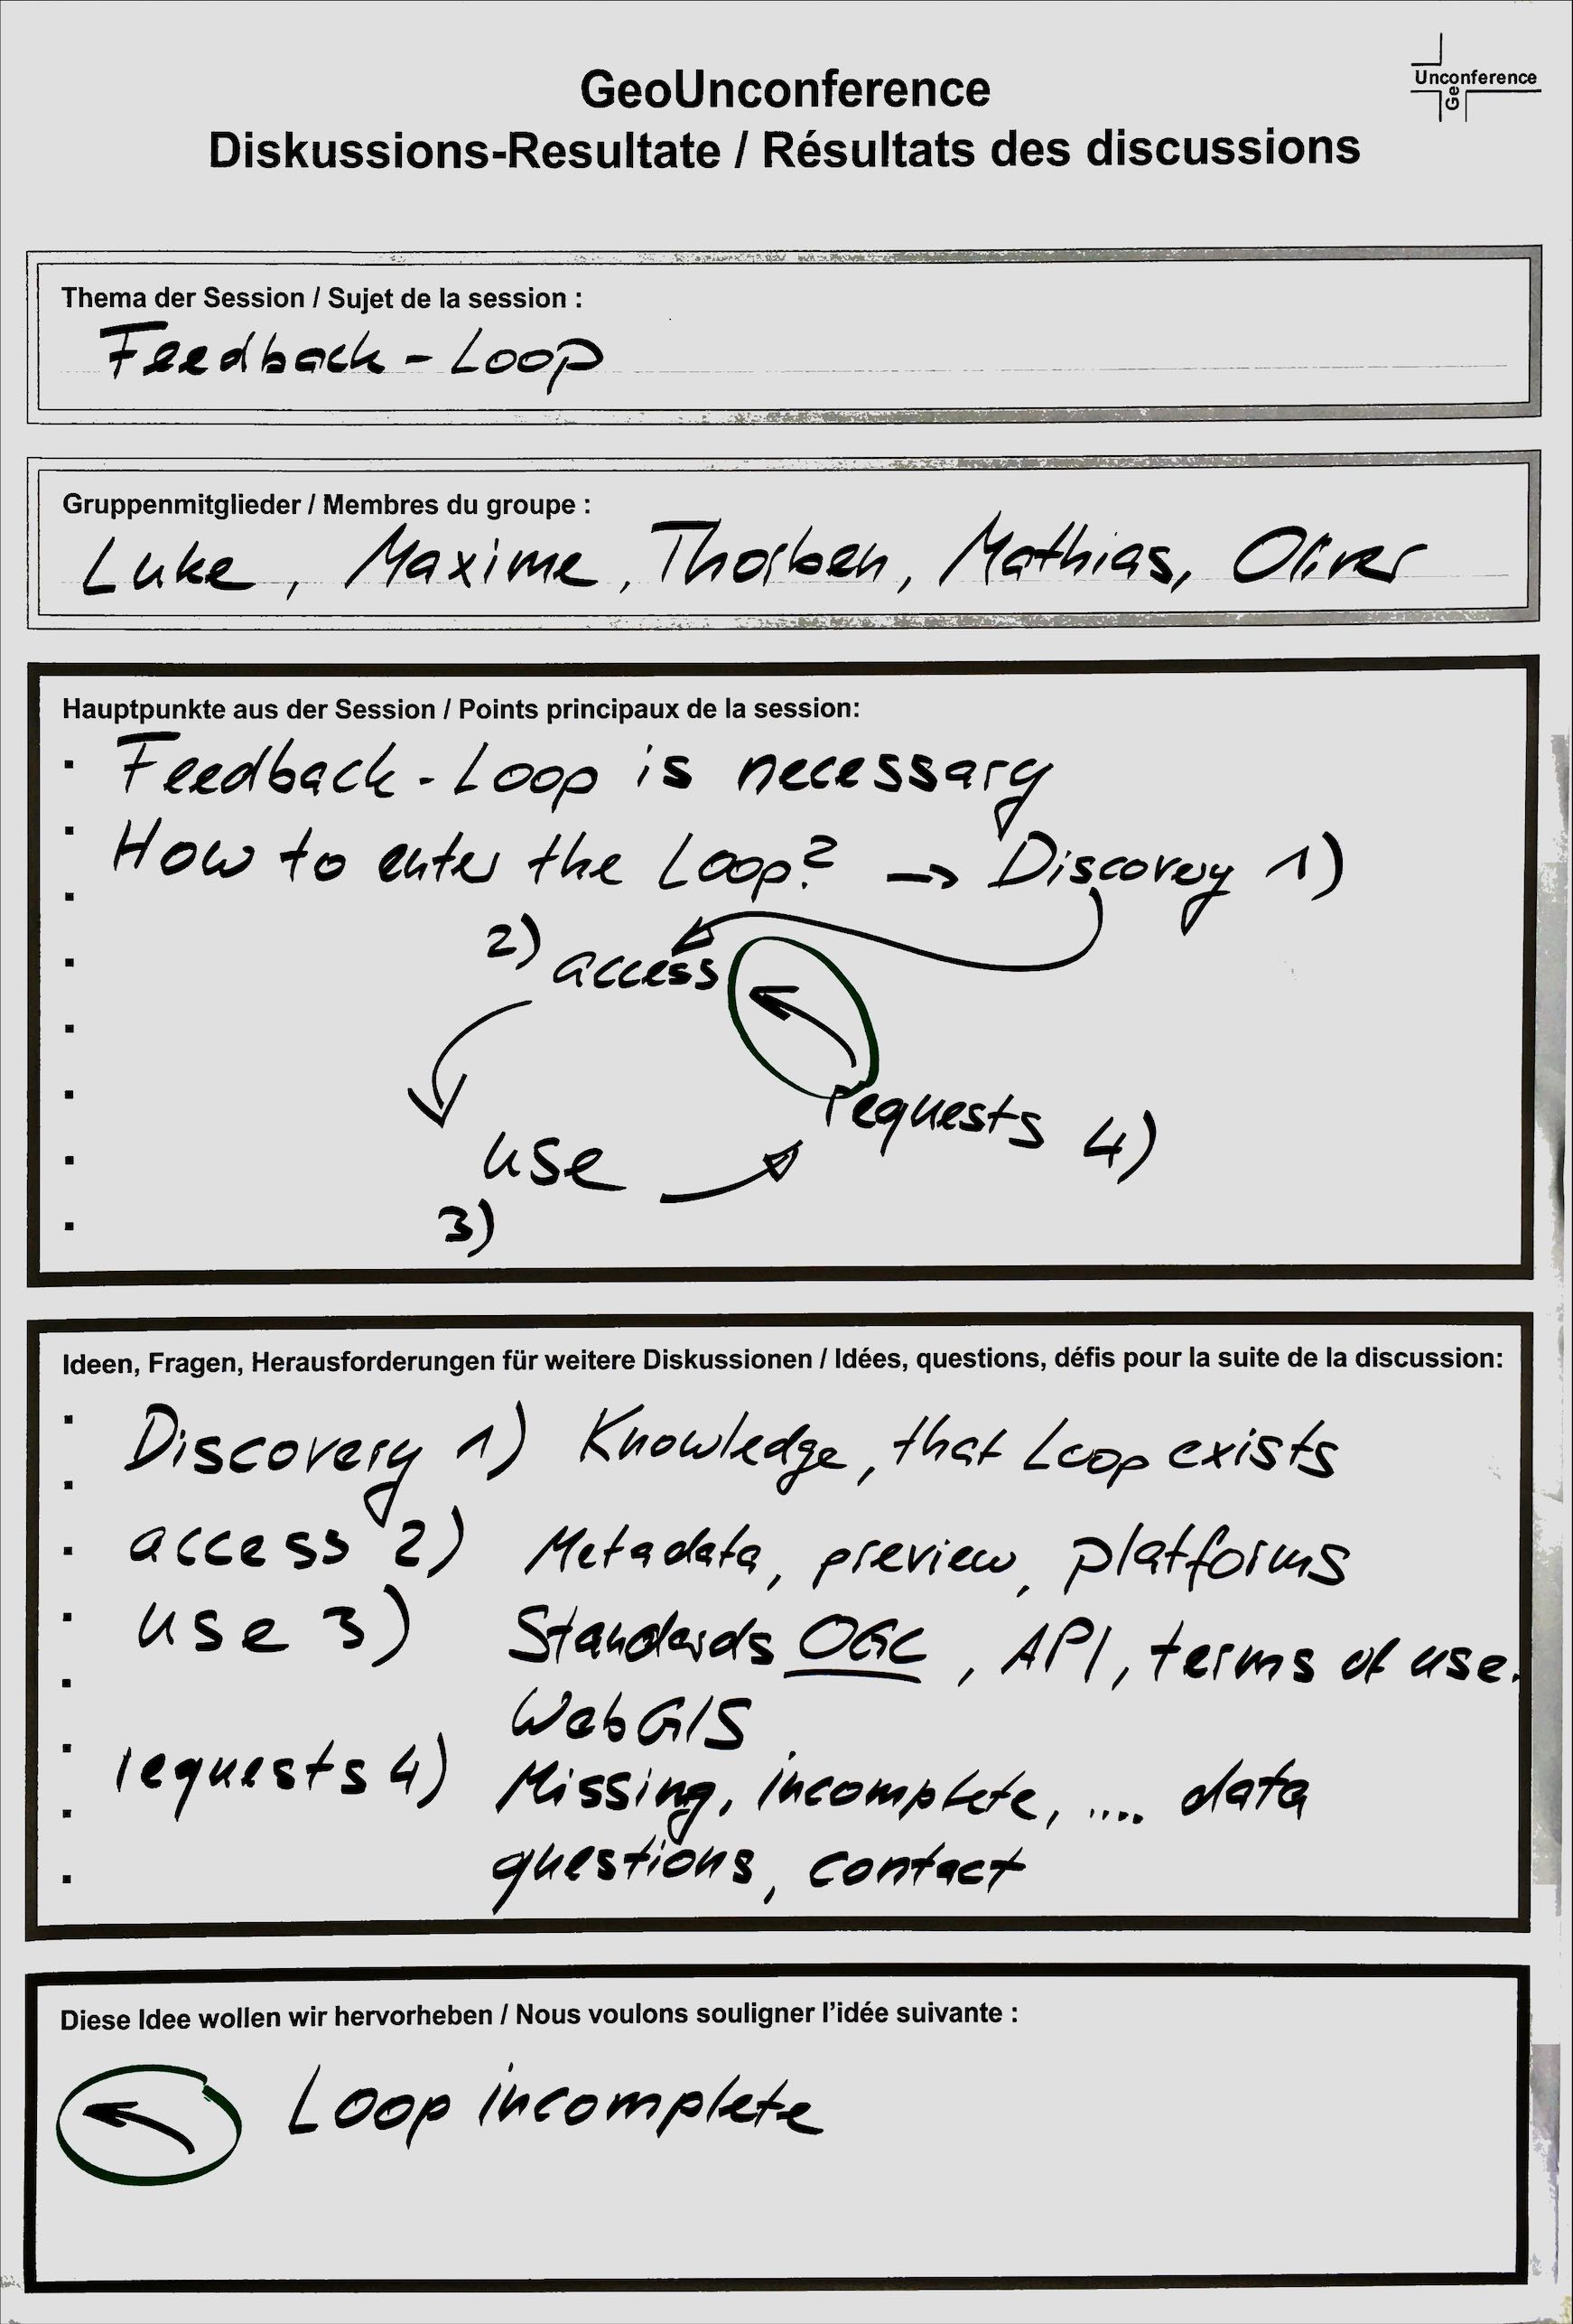 GeoUnconference
Diskussions-Resultate / Résultats des discussions
Unconference
Geo
Thema der Session / Sujet de la session :
Feedback - Loop
Gruppenmitglieder / Membres du groupe :
Luke, Maxime, Thorben, Mathias, Oliver
Hauptpunkte aus der Session / Points principaux de la session:
Feedback - Loop is necessary
How to enter the Loop? → Discovery 1)
2) access
requests 4)
use
3)
Ideen, Fragen, Herausforderungen für weitere Diskussionen / Idées, questions, défis pour la suite de la discussion:
Discovery 1) Knowledge, that Loop exists
access 2) Metadata, preview, platforms
use 3) Standards OGC, API, terms of use.
WebGIS
requests 4) Missing, incomplete, .... data
questions, contact
Diese Idee wollen wir hervorheben / Nous voulons souligner l'idée suivante :
Loop incomplete